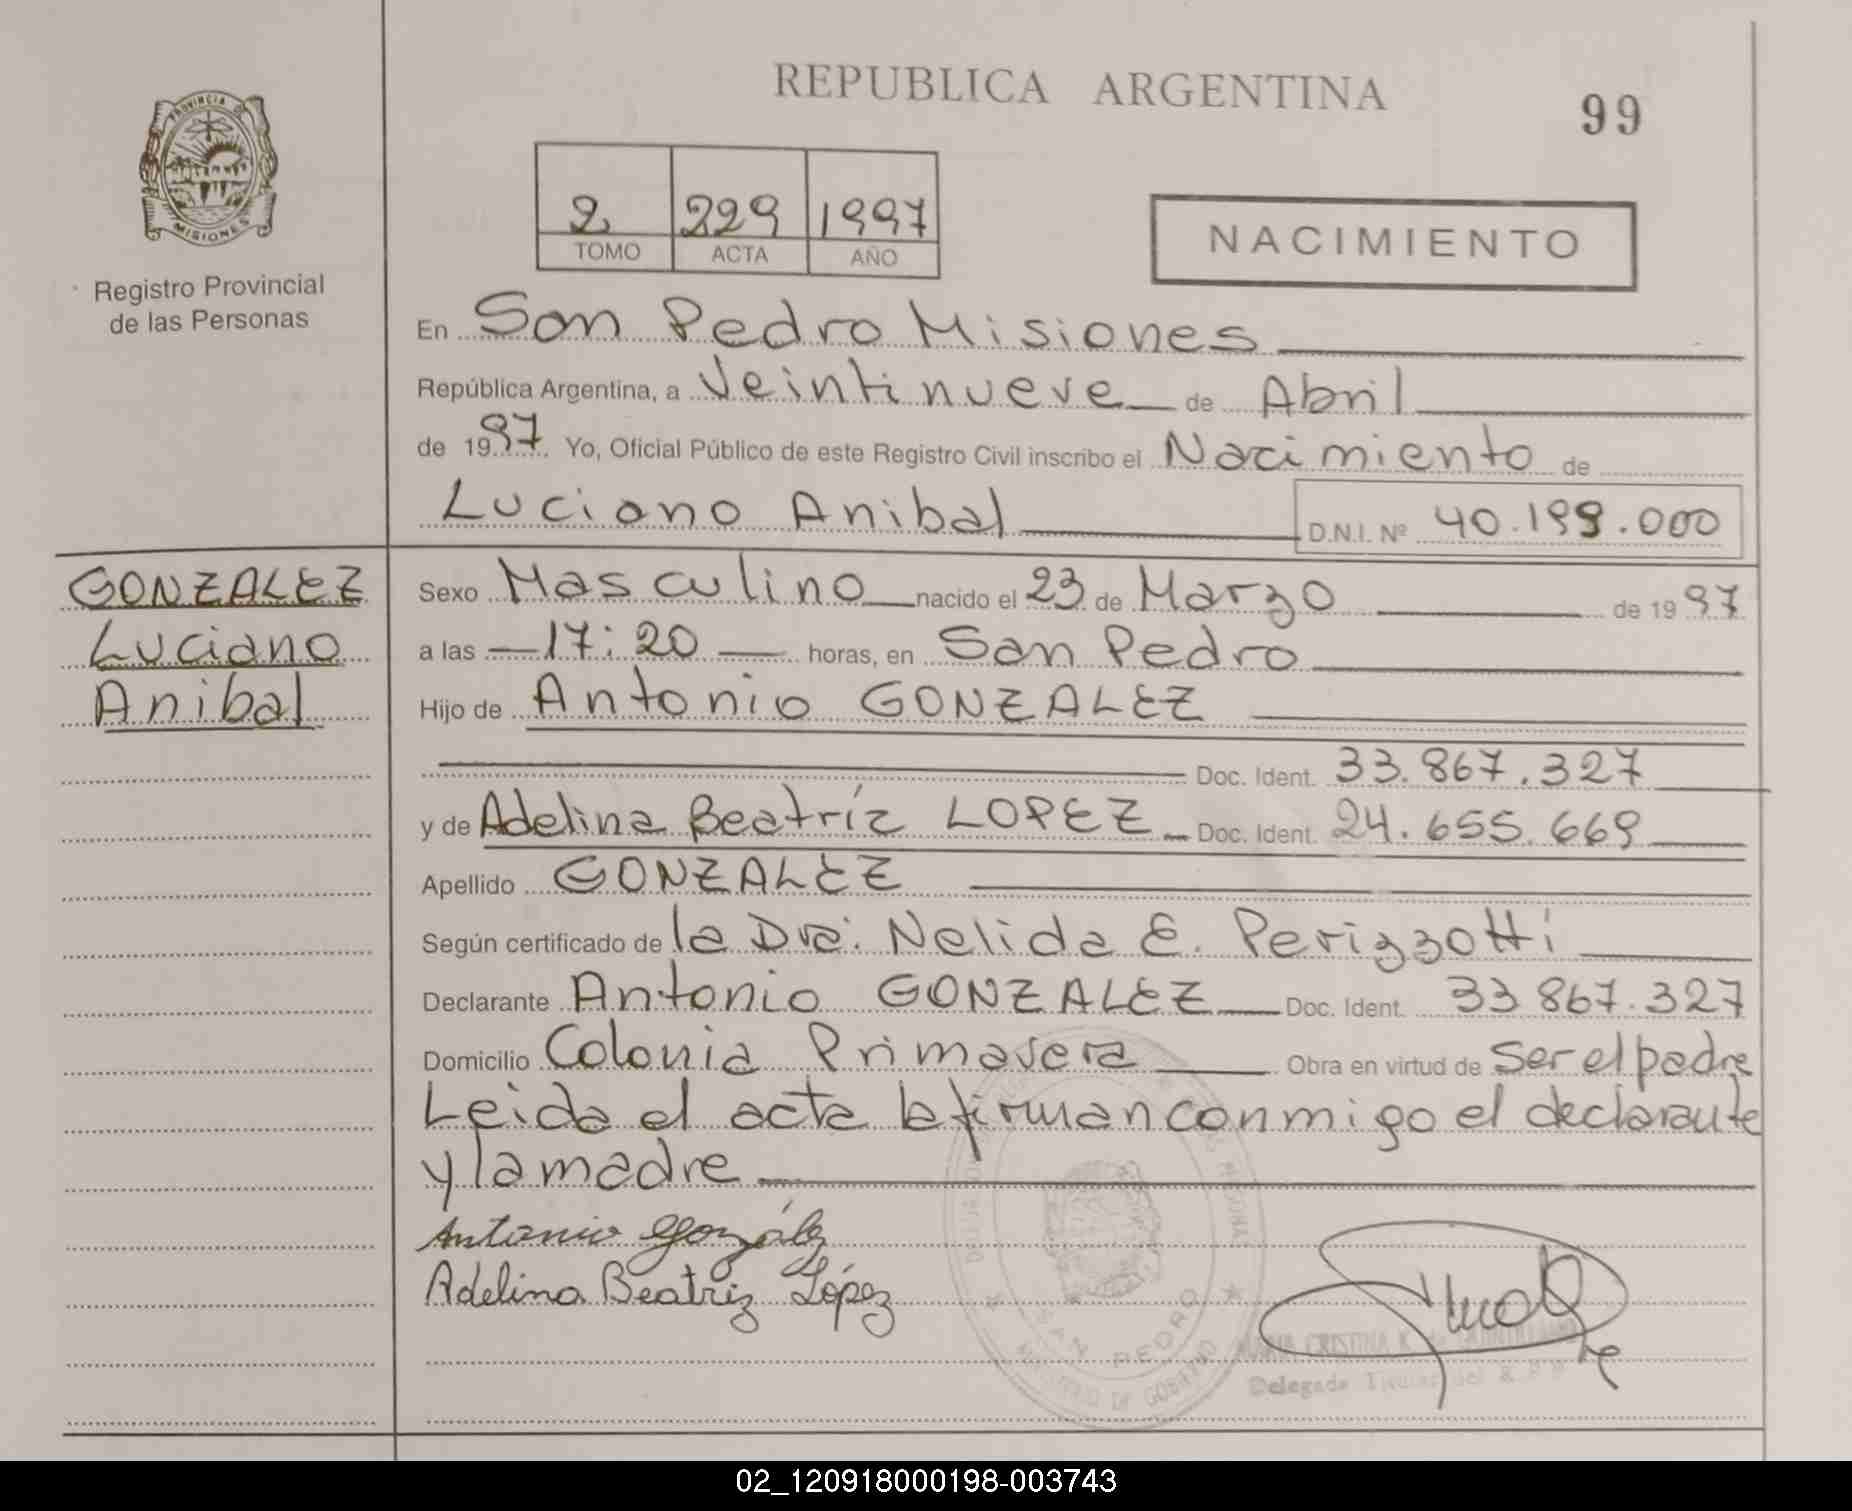 REPUBLICA ARGENTINA
99
PROVINCIA DE
MISIONES
Registro Provincial
de las Personas
2 229 1997
TOMO ACTA AÑO
NACIMIENTO
En San Pedro Misiones
República Argentina, a Veintinueve de Abril
de 1997 Yo, Oficial Público de este Registro Civil inscribo el Nacimiento de
Luciano Anibal D.N.I. Nº 40.199.000
GONZALEZ
Luciano
Anibal
Sexo Masculino nacido el 23 de Marzo de 1997
a las 17:20 horas, en San Pedro
Hijo de Antonio GONZALEZ
Doc. Ident. 33.867.327
y de Adelina Beatríz LOPEZ Doc. Ident. 24.655.669
Apellido GONZALEZ
Según certificado de la Dra. Nelida E. Perizzotti
Declarante Antonio GONZALEZ Doc. Ident. 33.867.327
Domicilio Colonia Primavera Obra en virtud de Ser el padre
Leida el acta la firman conmigo el declarante
y la madre
Antonio González
Adelina Beatriz López
SAN PEDRO
MINISTERIO DE GOBIERNO
MARIA CRISTINA K. de
Delegada Titular del R.P.P.
02_120918000198-003743